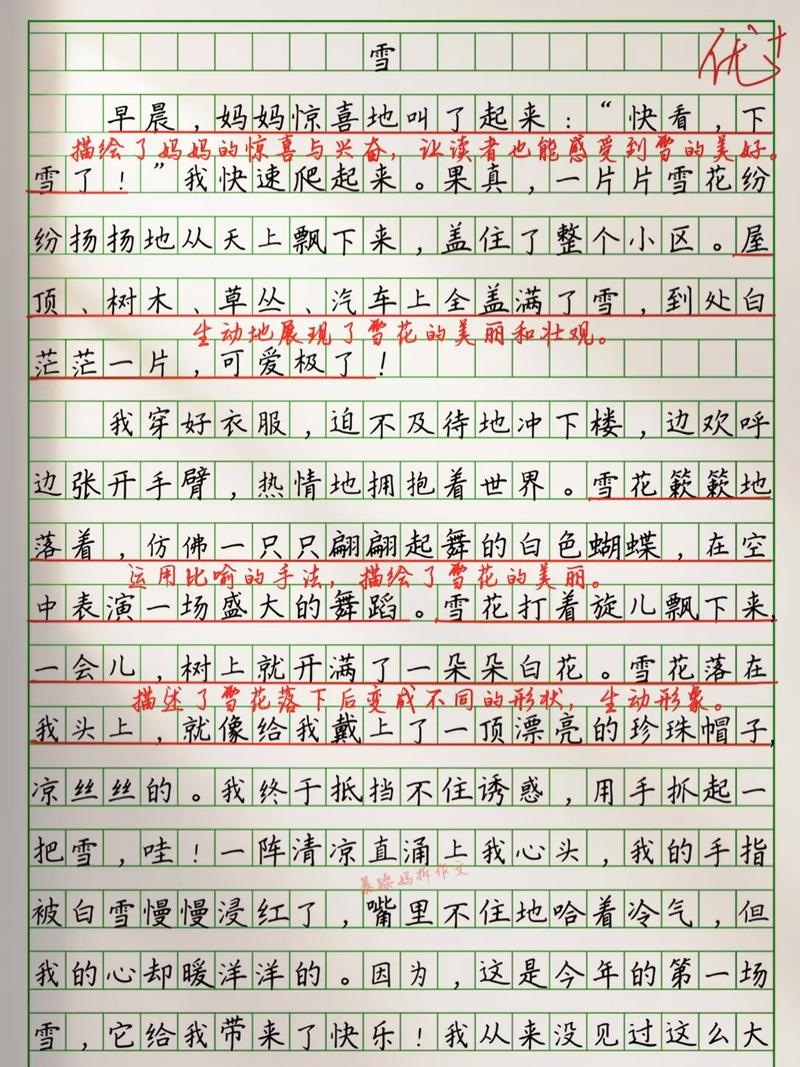 雪
优+
早晨，妈妈惊喜地叫了起来：“快看，下
描绘了妈妈的惊喜与兴奋，让读者也能感受到雪的美好。
雪了！”我快速爬起来。果真，一片片雪花纷
纷扬扬地从天上飘下来，盖住了整个小区。屋
顶、树木、草丛、汽车上全盖满了雪，到处白
生动地展现了雪花的美丽和壮观。
茫茫一片，可爱极了！
我穿好衣服，迫不及待地冲下楼，边欢呼
边张开手臂，热情地拥抱着世界。雪花簌簌地
落着，仿佛一只只翩翩起舞的白色蝴蝶，在空
运用比喻的手法，描绘了雪花的美丽。
中表演一场盛大的舞蹈。雪花打着旋儿飘下来，
一会儿，树上就开满了一朵朵白花。雪花落在
描述了雪花落下后变成不同的形状，生动形象。
我头上，就像给我戴上了一顶漂亮的珍珠帽子，
凉丝丝的。我终于抵挡不住诱惑，用手抓起一
把雪，哇！一阵清凉直涌上我心头，我的手指
暴躁妈拆作文
被白雪慢慢浸红了，嘴里不住地哈着冷气，但
我的心却暖洋洋的。因为，这是今年的第一场
雪，它给我带来了快乐！我从来没见过这么大